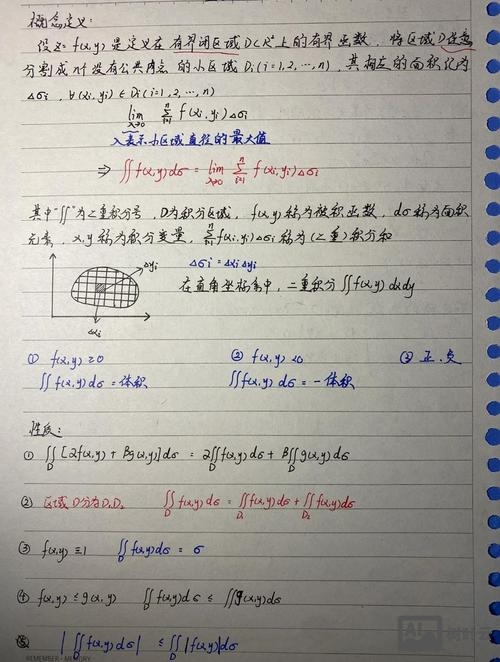 概念定义:
设z=f(x,y)是定义在有界闭区域D⊂R²上的有界函数,将区域D任意
分割成n个没有公共内点的小区域Di(i=1,2,…,n),其相应的面积记为
Δσi,∀(xi,yi)∈Di(i=1,2,…,n)
lim λ→0 ∑ i=1 n f(xi,yi)Δσi
λ表示小区域直径的最大值
⇒ ∬f(x,y)dσ = lim λ→0 ∑ i=1 n f(xi,yi)Δσi
其中"∬"为二重积分号,D为积分区域,f(x,y)称为被积函数,dσ称为面积
元素,x,y称为积分变量,∑ i=1 n f(xi,yi)Δσi称为(二重)积分和
Δyi
Δσi=ΔxiΔyi
在直角坐标系中,二重积分∬f(x,y)dxdy
Δxi
① f(x,y)≥0 ② f(x,y)<0 ③ 正、负
∬f(x,y)dσ=体积 ∬f(x,y)dσ=-体积
性质:
① ∬D [2f(x,y)+βg(x,y)]dσ = 2∬D f(x,y)dσ+β∬D g(x,y)dσ
② 区域D分为D₁D₂ ∬D f(x,y)dσ=∬D₁ f(x,y)dσ+∬D₂ f(x,y)dσ
③ f(x,y)≡1 ∬D f(x,y)dσ = σ
④ f(x,y)≤g(x,y) ∬D f(x,y)dσ ≤ ∬g(x,y)dσ
⑤ |∬D f(x,y)dσ| ≤∬D |f(x,y)|dσ